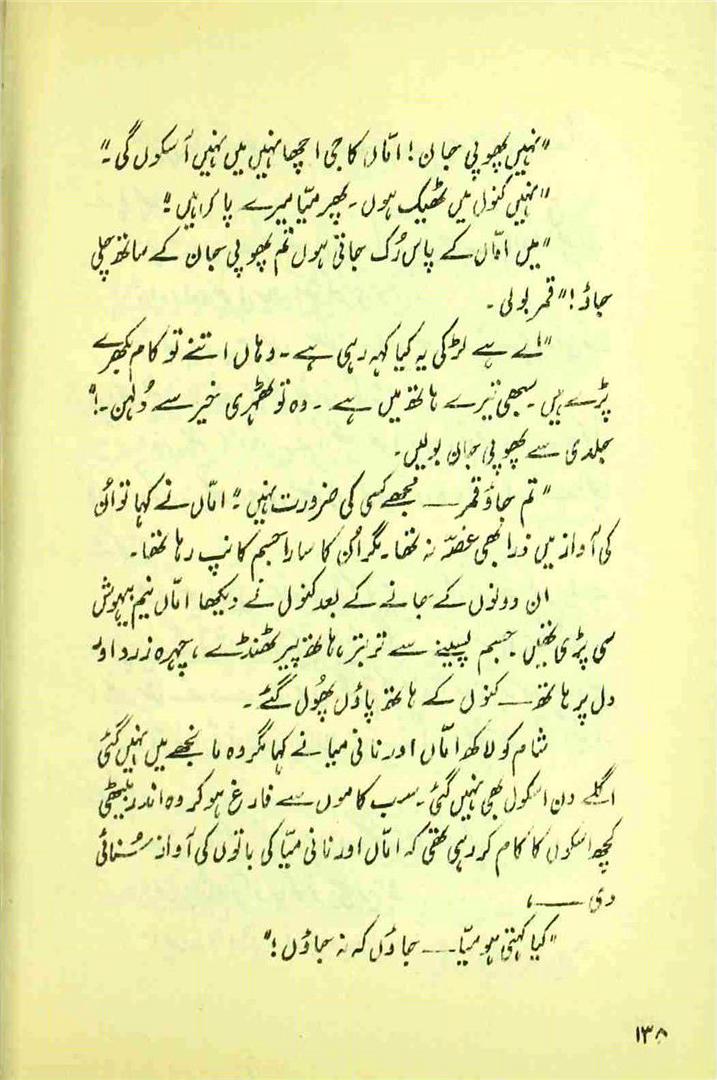 "نہیں پھوپی جان! امّاں کا جی اچھا نہیں میں نہیں آسکوں گی۔"
"نہیں کنول میں ٹھیک ہوں۔ پھر میّا میرے پاس ہیں۔"
"میں امّاں کے پاس رُک جاتی ہوں تم پھوپی جان کے ساتھ چلی
جاؤ!" قمر بولی۔
"اے ہے لڑکی یہ کیا کہہ رہی ہے۔ وہاں اتنے تو کام بکھرے
پڑے ہیں۔ سبھی تیرے ہاتھ میں ہے۔ وہ تو ٹھہری خیر سے دُلہن۔!"
جلدی سے پھوپی جان بولیں۔
"تم جاؤ قمر — مجھے کسی کی ضرورت نہیں۔" امّاں نے کہا تو اُن
کی آواز میں ذرا بھی غصّہ نہ تھا۔ مگر اُن کا سارا جسم کانپ رہا تھا۔
ان دونوں کے جانے کے بعد کنول نے دیکھا امّاں نیم بیہوش
سی پڑی تھیں۔ جسم پسینے سے تربتر، ہاتھ پیر ٹھنڈے، چہرہ زرد اور
دل پر ہاتھ — کنول کے ہاتھ پاؤں پھُول گئے۔
شام کو لاکھ امّاں اور نانی میّا نے کہا مگر وہ مانجھے میں نہیں گئی
اگلے دن اسکول بھی نہیں گئی۔ سب کاموں سے فارغ ہو کر وہ اندر بیٹھی
کچھ اسکول کا کام کر رہی تھی کہ امّاں اور نانی میّا کی باتوں کی آواز سُنائی
دی —،
"کیا کہتی ہو میّا — جاؤں کہ نہ جاؤں!"
۱۳۵